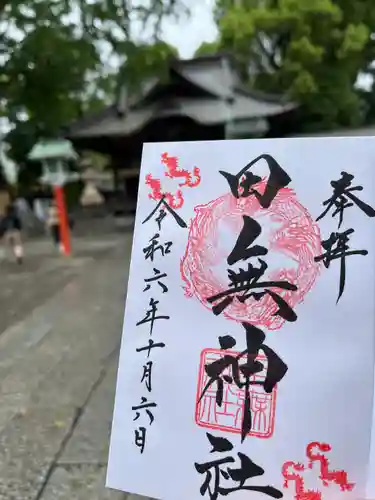 奉拝
田無神社
令和六年十月十六日